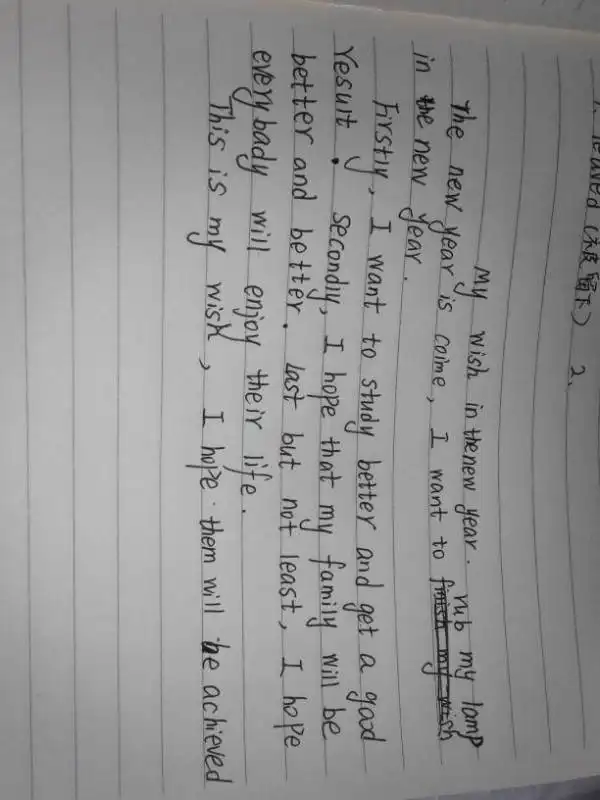 1. leaved (被留下) 2、
My wish in the new year.
rub my lamp
The new year is coime, I want to finish my wish
in the new year.
Firstly, I want to study better and get a good
resuit. secondly, I hope that my family will be
better and better. last but not least, I hope
everybady will enjoy their life.
This is my wish, I hope them will be achieved